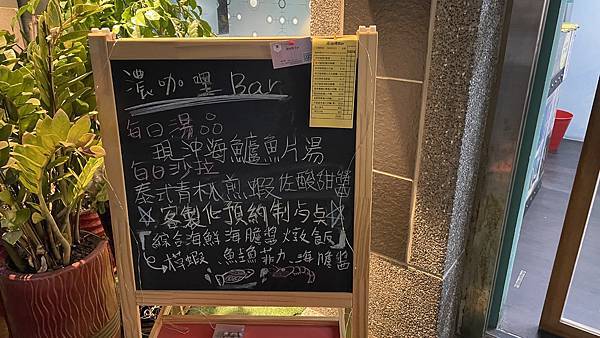 濃咖嘿 Bar
每日湯品
現沖海鱸魚片湯
每日沙拉
泰式青木瓜煎蝦佐酸甜醬
☆客製化預約制餐点☆
「綜合海鮮海膽醬燉飯」
鮭魚菲力、海膽醬